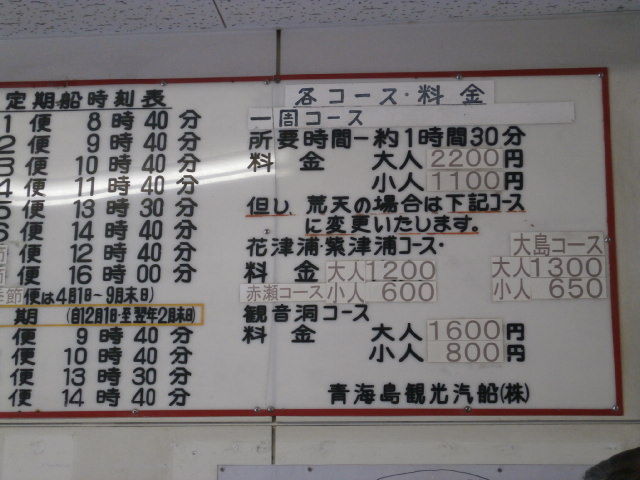 定期船時刻表
1 便 8時40分
2 便 9時40分
3 便 10時40分
4 便 11時40分
5 便 13時30分
6 便 14時40分
節 便 12時40分
節 便 16時00分
季節便は4月1日～9月末日)
期 (自12月1日・至翌年2月末日)
便 9時40分
便 10時40分
便 13時30分
便 14時40分
各コース・料金
一周コース
所要時間ー約1時間30分
料金 大人 2200円
小人 1100円
但し、荒天の場合は下記コース
に変更いたします。
花津浦紫津浦コース・ 大島コース
料金 大人1200 大人1300
赤瀬コース 小人 600 小人 650
観音洞コース
料金 大人 1600円
小人 800円
青海島観光汽船(株)